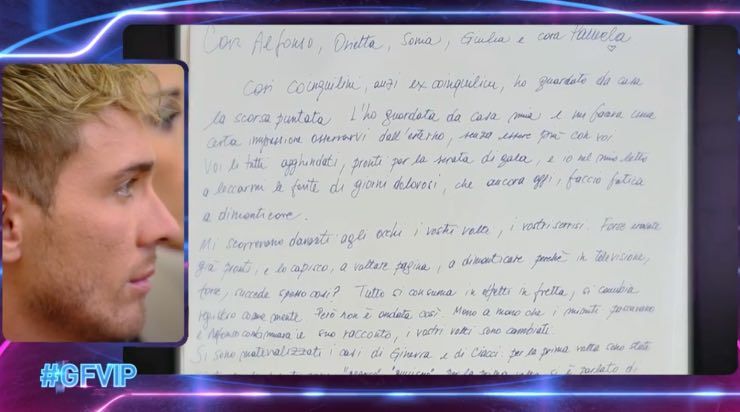 Cari Alfonso, Orietta, Sonia, Giulia e cara Pamela
Cari Coinquilini, anzi ex coinquilini, ho guardato da casa
la scorsa puntata. L'ho guardata da casa mia e mi faceva una
certa impressione osservarvi dall'esterno, senza essere più con voi.
Voi lì tutti agghindati, pronti per la serata di gala, e io nel mio letto
a leccarmi le ferite di giorni dolorosi, che ancora oggi, faccio fatica
a dimenticare.
Mi scorrevano davanti agli occhi i vostri volti, i vostri sorrisi. Forse
già pronti, e lo capisco, a voltare pagina, a dimenticare perchè in televisione,
forse, succede spesso così? Tutto si consuma in effetti in fretta, si cambia
registro come niente. Però non è andata così. Mano a mano che i minuti passavano
e Alfonso continuava il suo racconto, i vostri volti sono cambiati.
Si sono materializzati i casi di Ginevra e di Ciacci. per la prima volta sono state
per la prima volta si è parlato di
#GFVIP